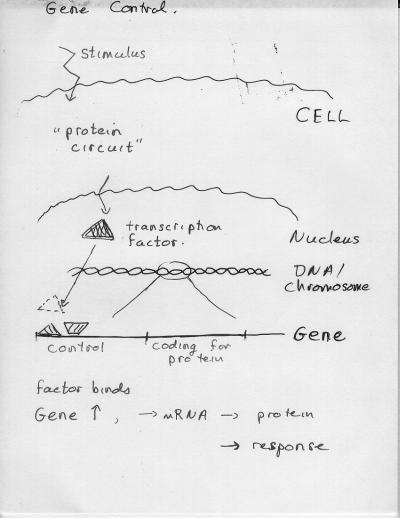 Gene Control.
stimulus
CELL
"protein
circuit"
transcription
factor.
Nucleus
DNA/
chromosome
Gene
control
coding for
protein
factor binds
Gene ↑, → mRNA → protein
→ response